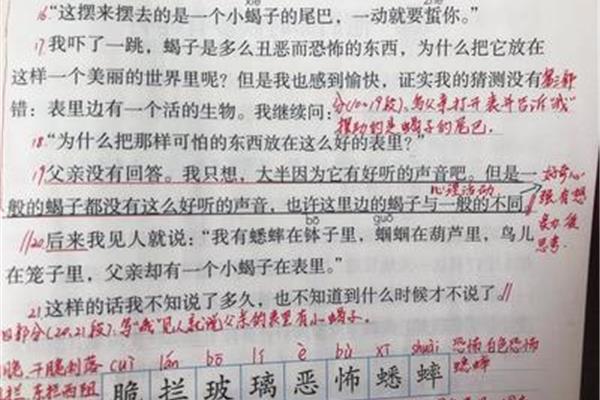 16“这摆来摆去的是一个小蝎子的尾巴，一动就要蜇你。”
17我吓了一跳，蝎子是多么丑恶而恐怖的东西，为什么把它放在
这样一个美丽的世界里呢？但是我也感到愉快，证实我的猜测没有
第三部
错：表里边有一个活的生物。我继续问：
分(10~19段)：写父亲打开表并告诉“我”
摆动的是蝎子的尾巴.
18“为什么把那样可怕的东西放在这么好的表里？”
19父亲没有回答。我只想，大半因为它有好听的声音吧。但是一
好奇心
心理活动
般的蝎子都没有这么好听的声音，也许这里边的蝎子与一般的不同。
强,有想
思考.
bō guō
20后来我见人就说：“我有蟋蟀在钵子里，蝈蝈在葫芦里，鸟儿
在笼子里，父亲却有一个小蝎子在表里。”
21这样的话我不知说了多久，也不知道到什么时候才不说了。
部分(20,21段)：写“我”见人就说父亲的表里有小蝎子.
脆 干脆利落 cuì lán bō lí è bù xī shuài 恐怖 白色恐怖
拦 东拦西阻 蟋蟀
脆 拦 玻 璃 恶 怖 蟋 蟀